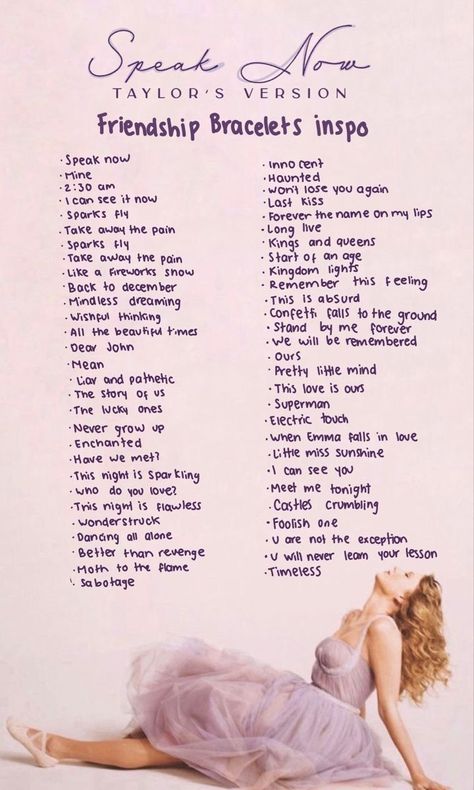 Speak Now
TAYLOR'S VERSION
Friendship Bracelets inspo
· Speak now
· Mine
· 2:30 am
· I can see it now
· Sparks fly
· Take away the pain
· Sparks fly
· Take away the pain
· Like a fireworks show
· Back to december
· Mindless dreaming
· Wishful thinking
· All the beautiful times
· Dear John
· Mean
· Liar and pathetic
· The story of us
· The lucky ones
· Never grow up
· Enchanted
· Have we met?
· This night is sparkling
· Who do you love?
· This night is flawless
· Wonderstruck
· Dancing all alone
· Better than revenge
· Moth to the flame
· Sabotage
· Innocent
· Haunted
· Won't lose you again
· Last kiss
· Forever the name on my lips
· Long live
· Kings and queens
· Start of an age
· Kingdom lights
· Remember this feeling
· This is absurd
· Confetti falls to the ground
· Stand by me forever
· We will be remembered
· Ours
· Pretty little mind
· This love is ours
· Superman
· Electric touch
· When Emma falls in love
· Little miss sunshine
· I can see you
· Meet me tonight
· Castles crumbling
· Foolish one
· U are not the exception
· U will never learn your lesson
· Timeless